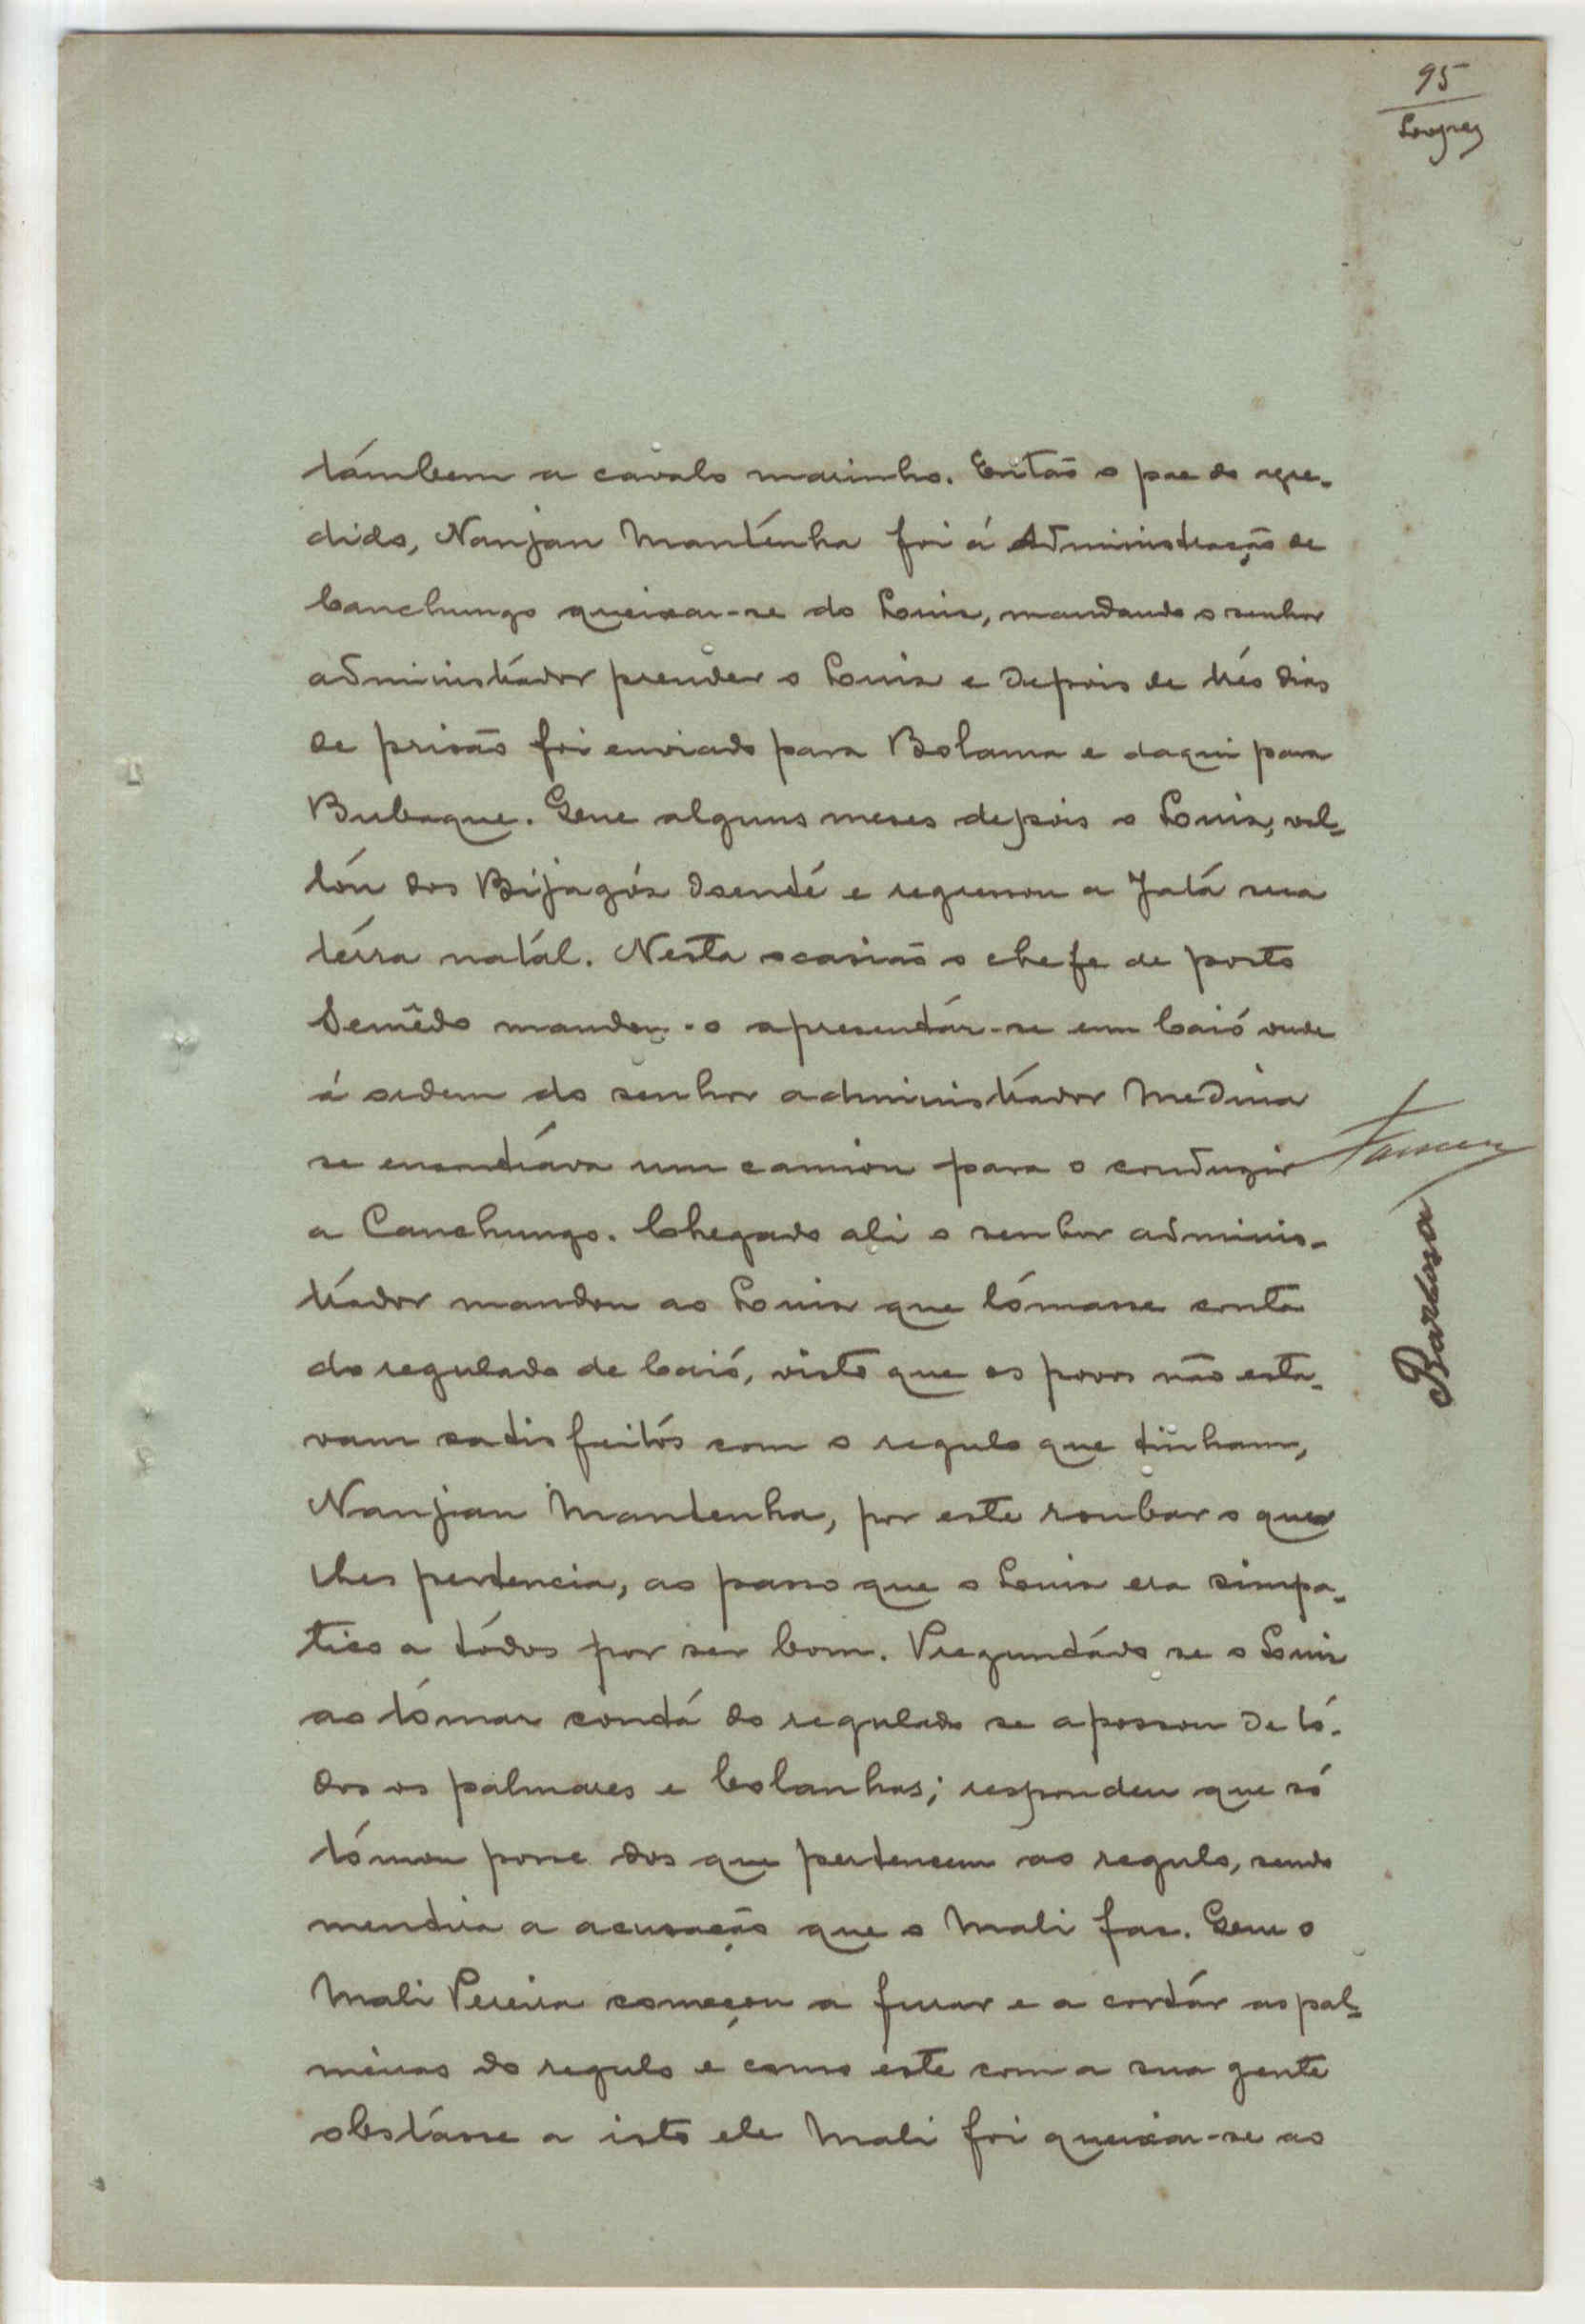 95
támbem a cavalo marinho. Então o pae do agre-
dido, Nanjan Manténha foi á Administração de
Canchungo queixar-se do Louis, mandando o senhor
administrádor prender o Louis e depois de trés dias
de prisão foi enviado para Bolama e daqui para
Bubaque. Que alguns meses depois o Louis, vol-
tou dos Bijagós doente e regressou a Jatá sua
térra natál. Nesta ocasião o chefe de posto
Semêdo mandou-o apresentár-se em Caió onde
á ordem do senhor administrádor Medina
se encontráva um camion para o conduzir
a Canchungo. Chegado ali o senhor adminis-
trádor mandou ao Louis que tómasse conta
do regulado de Caió, visto que os povos não esta-
vam satisfeitós com o regulo que tinham,
Nanjian Mantenha, por este roubar o que
lhes pertencia, ao passo que o Louis era simpa-
tico a tódos por ser bom. Preguntádo se o Louis
ao tómar contá do regulado se apossou de tó-
dos os palmares e bolanhas; respondeu que só
tómou posse dos que pertencem ao regulo, sendo
mentira a acusação que o Mali fas. Que o
Mali Pereira começou a furar e a cortár as pal-
meiras do regulo e como este com a sua gente
obstásse a isto ele Mali foi queixar-se ao
Barbosa